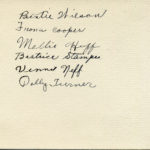 Bertie Wilson
Frona Cooper
Mellie Huff
Beatrice Stamper
Vennie Neff
Polly Turner